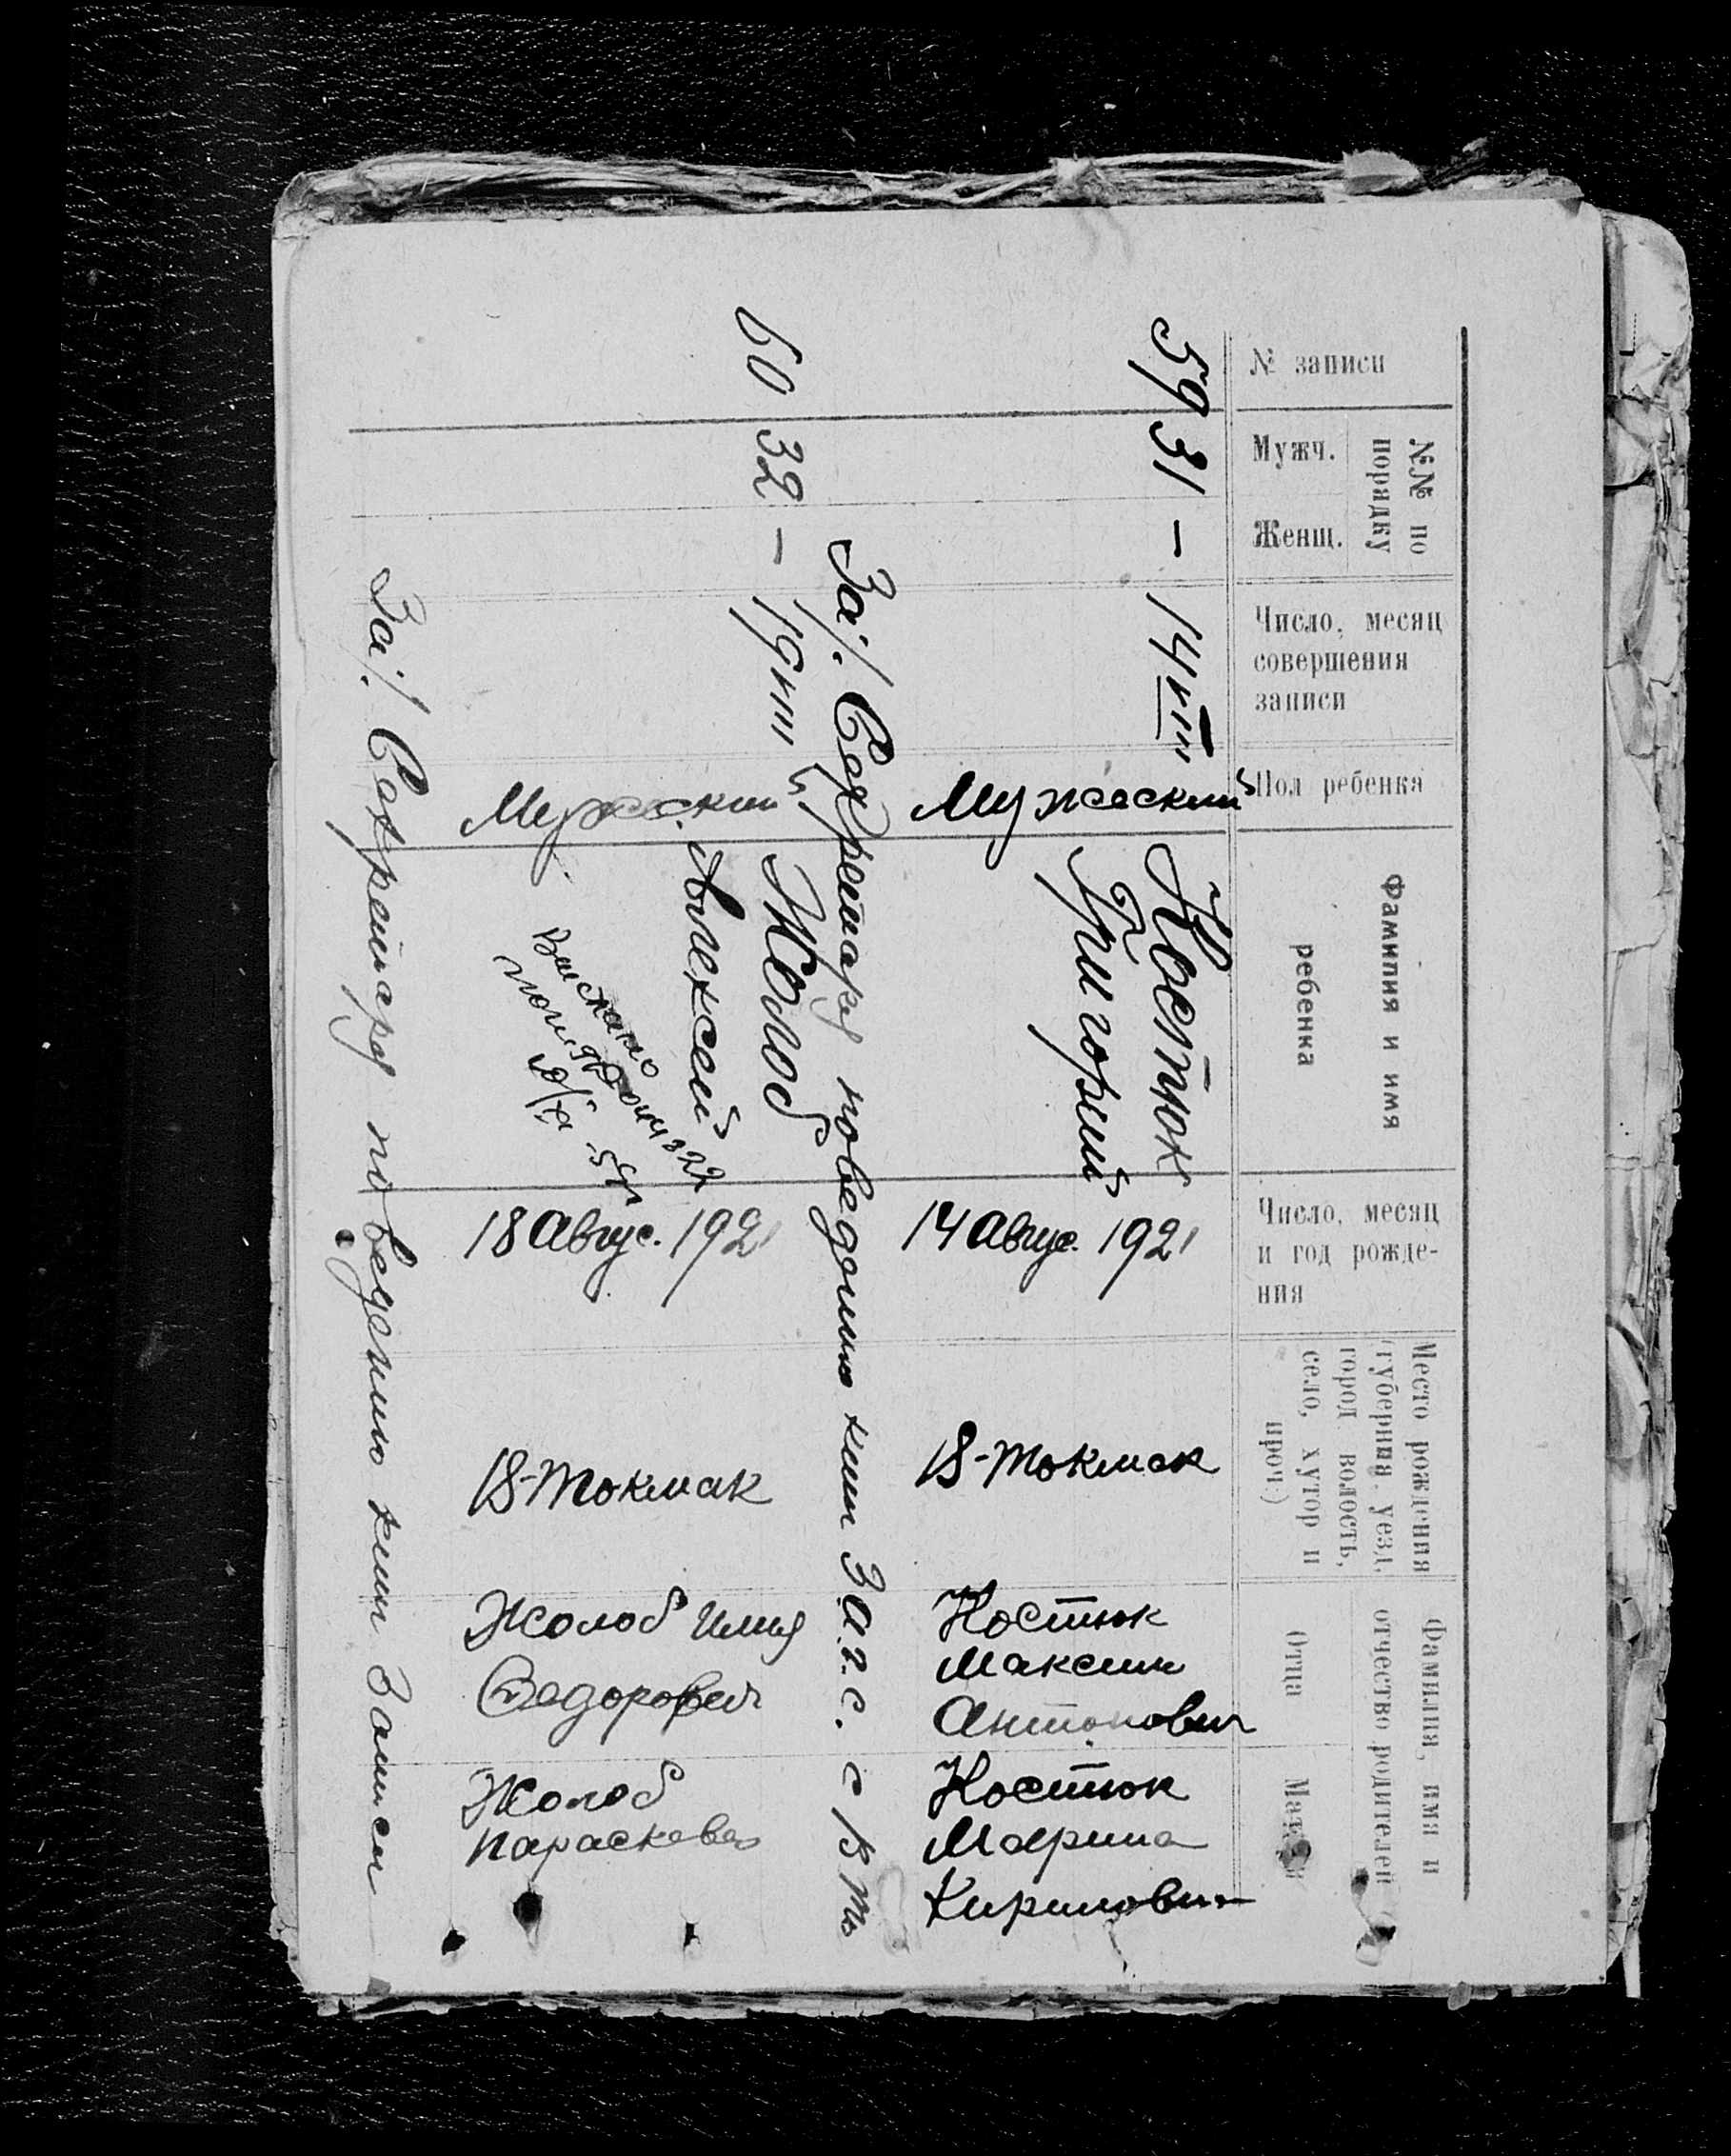 № записи
№№ по
порядку
Мужч.
Женщ.
Число, месяц
совершения
записи
Пол ребенка
Фамилия и имя
ребенка
Число, месяц
и год рожде-
ния
Место рождения
(губерния, уезд,
город волость,
село, хутор и
проч.)
Фамилия, имя и
отчество родителей
Отца
59 31 – 14 VIII
Мужеский
Костюк
Григорий
14 Авгус. 1921
В-Токмак
Костюк
Максим
Антонович
Костюк
Марина
Кирилович
За! Секретаря по ведению книг З.а.г.с. с В Т
60 32 – 19 VIII
Мужеский
Жолоб
Алексей
18 Авгус. 1921
В-Токмак
Жолоб Илья
Федорович
Жолоб
Параскева
За! Секретаря по ведению книг Записи